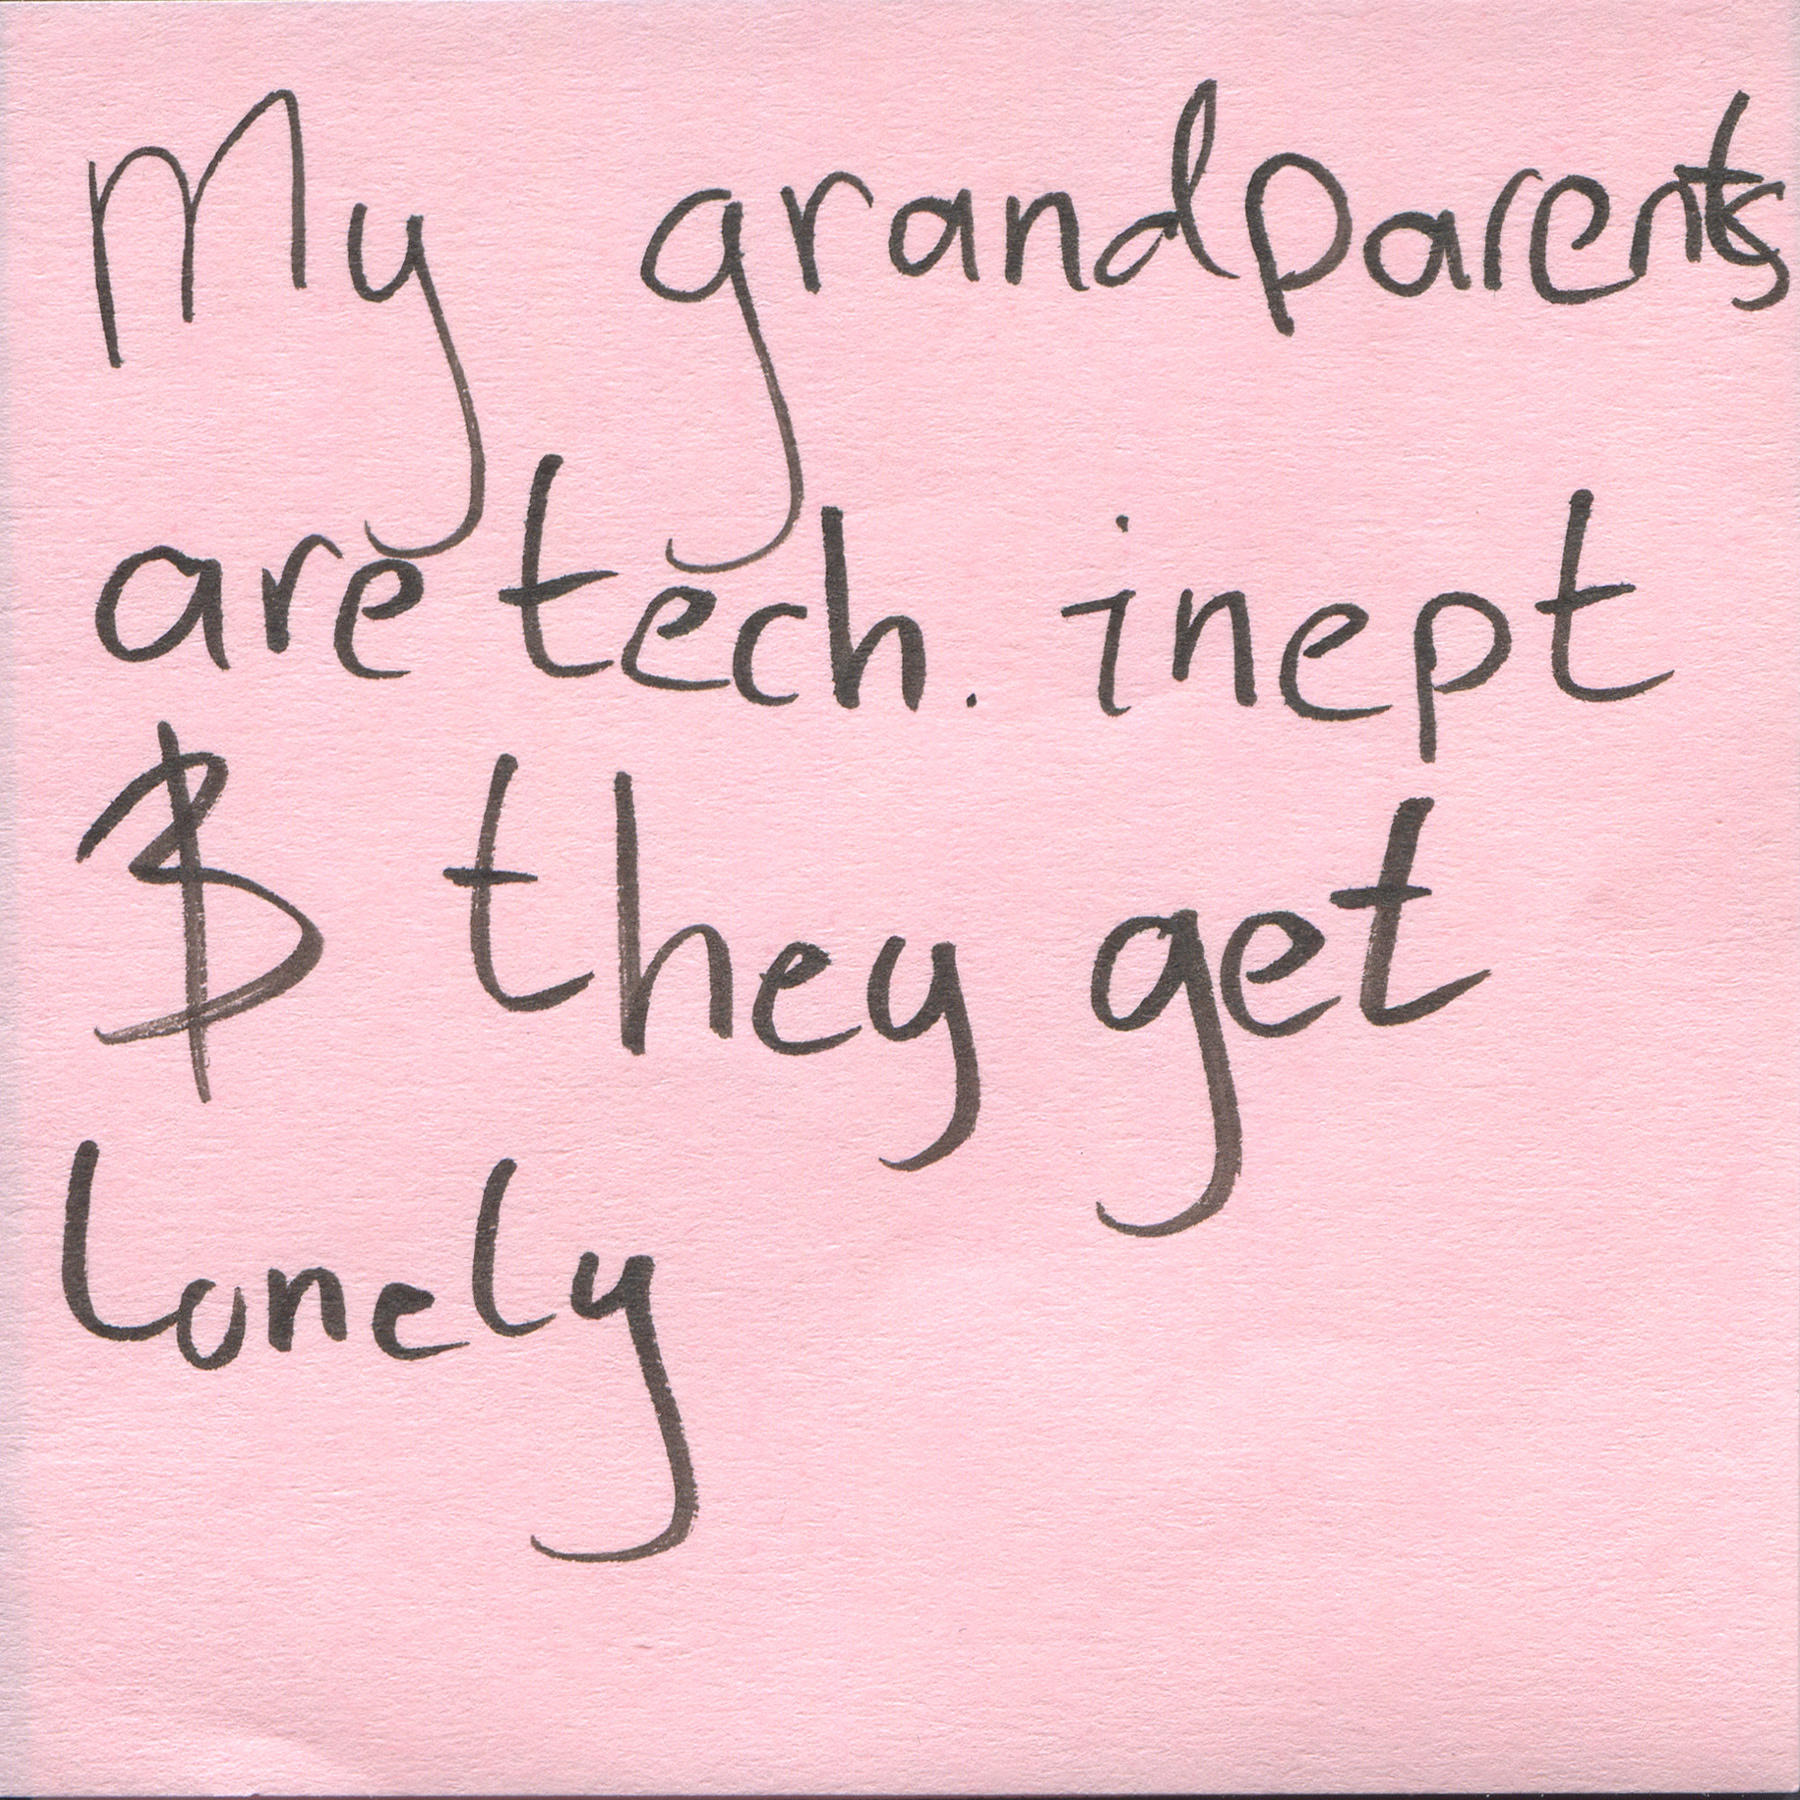 My grandparents
are tech. inept
& they get
lonely